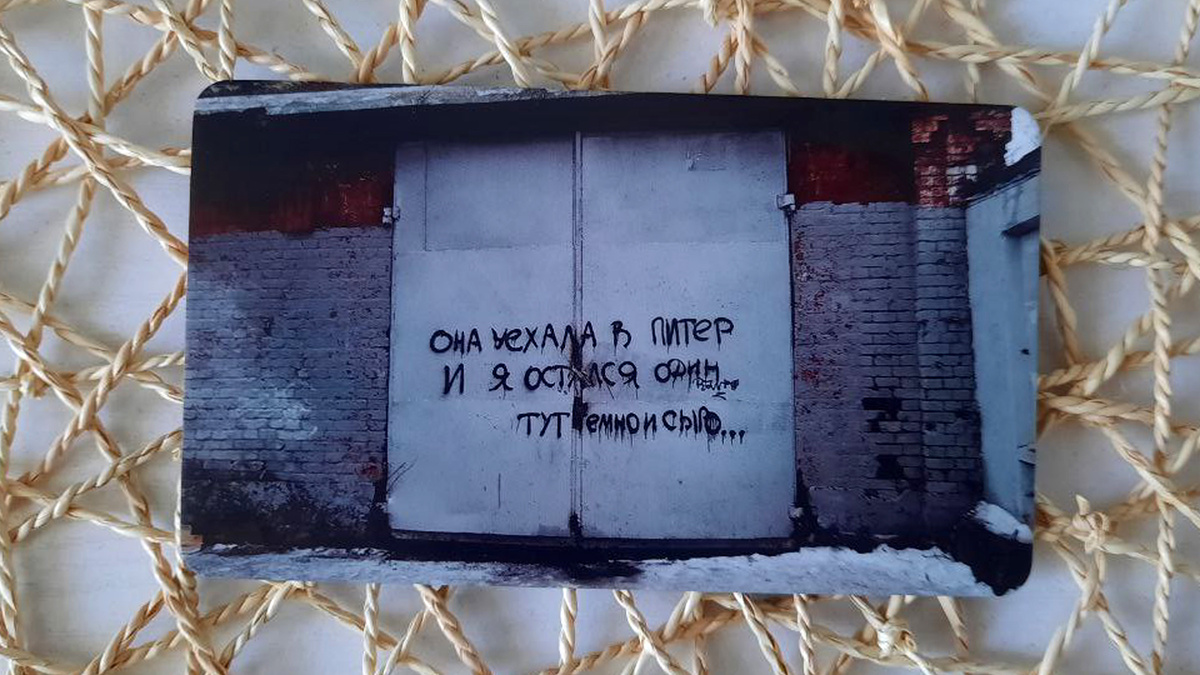 ОНА УЕХАЛА В ПИТЕР
И Я ОСТАЛСЯ ОДИН
ТУТ ТЕМНО И СЫРО...